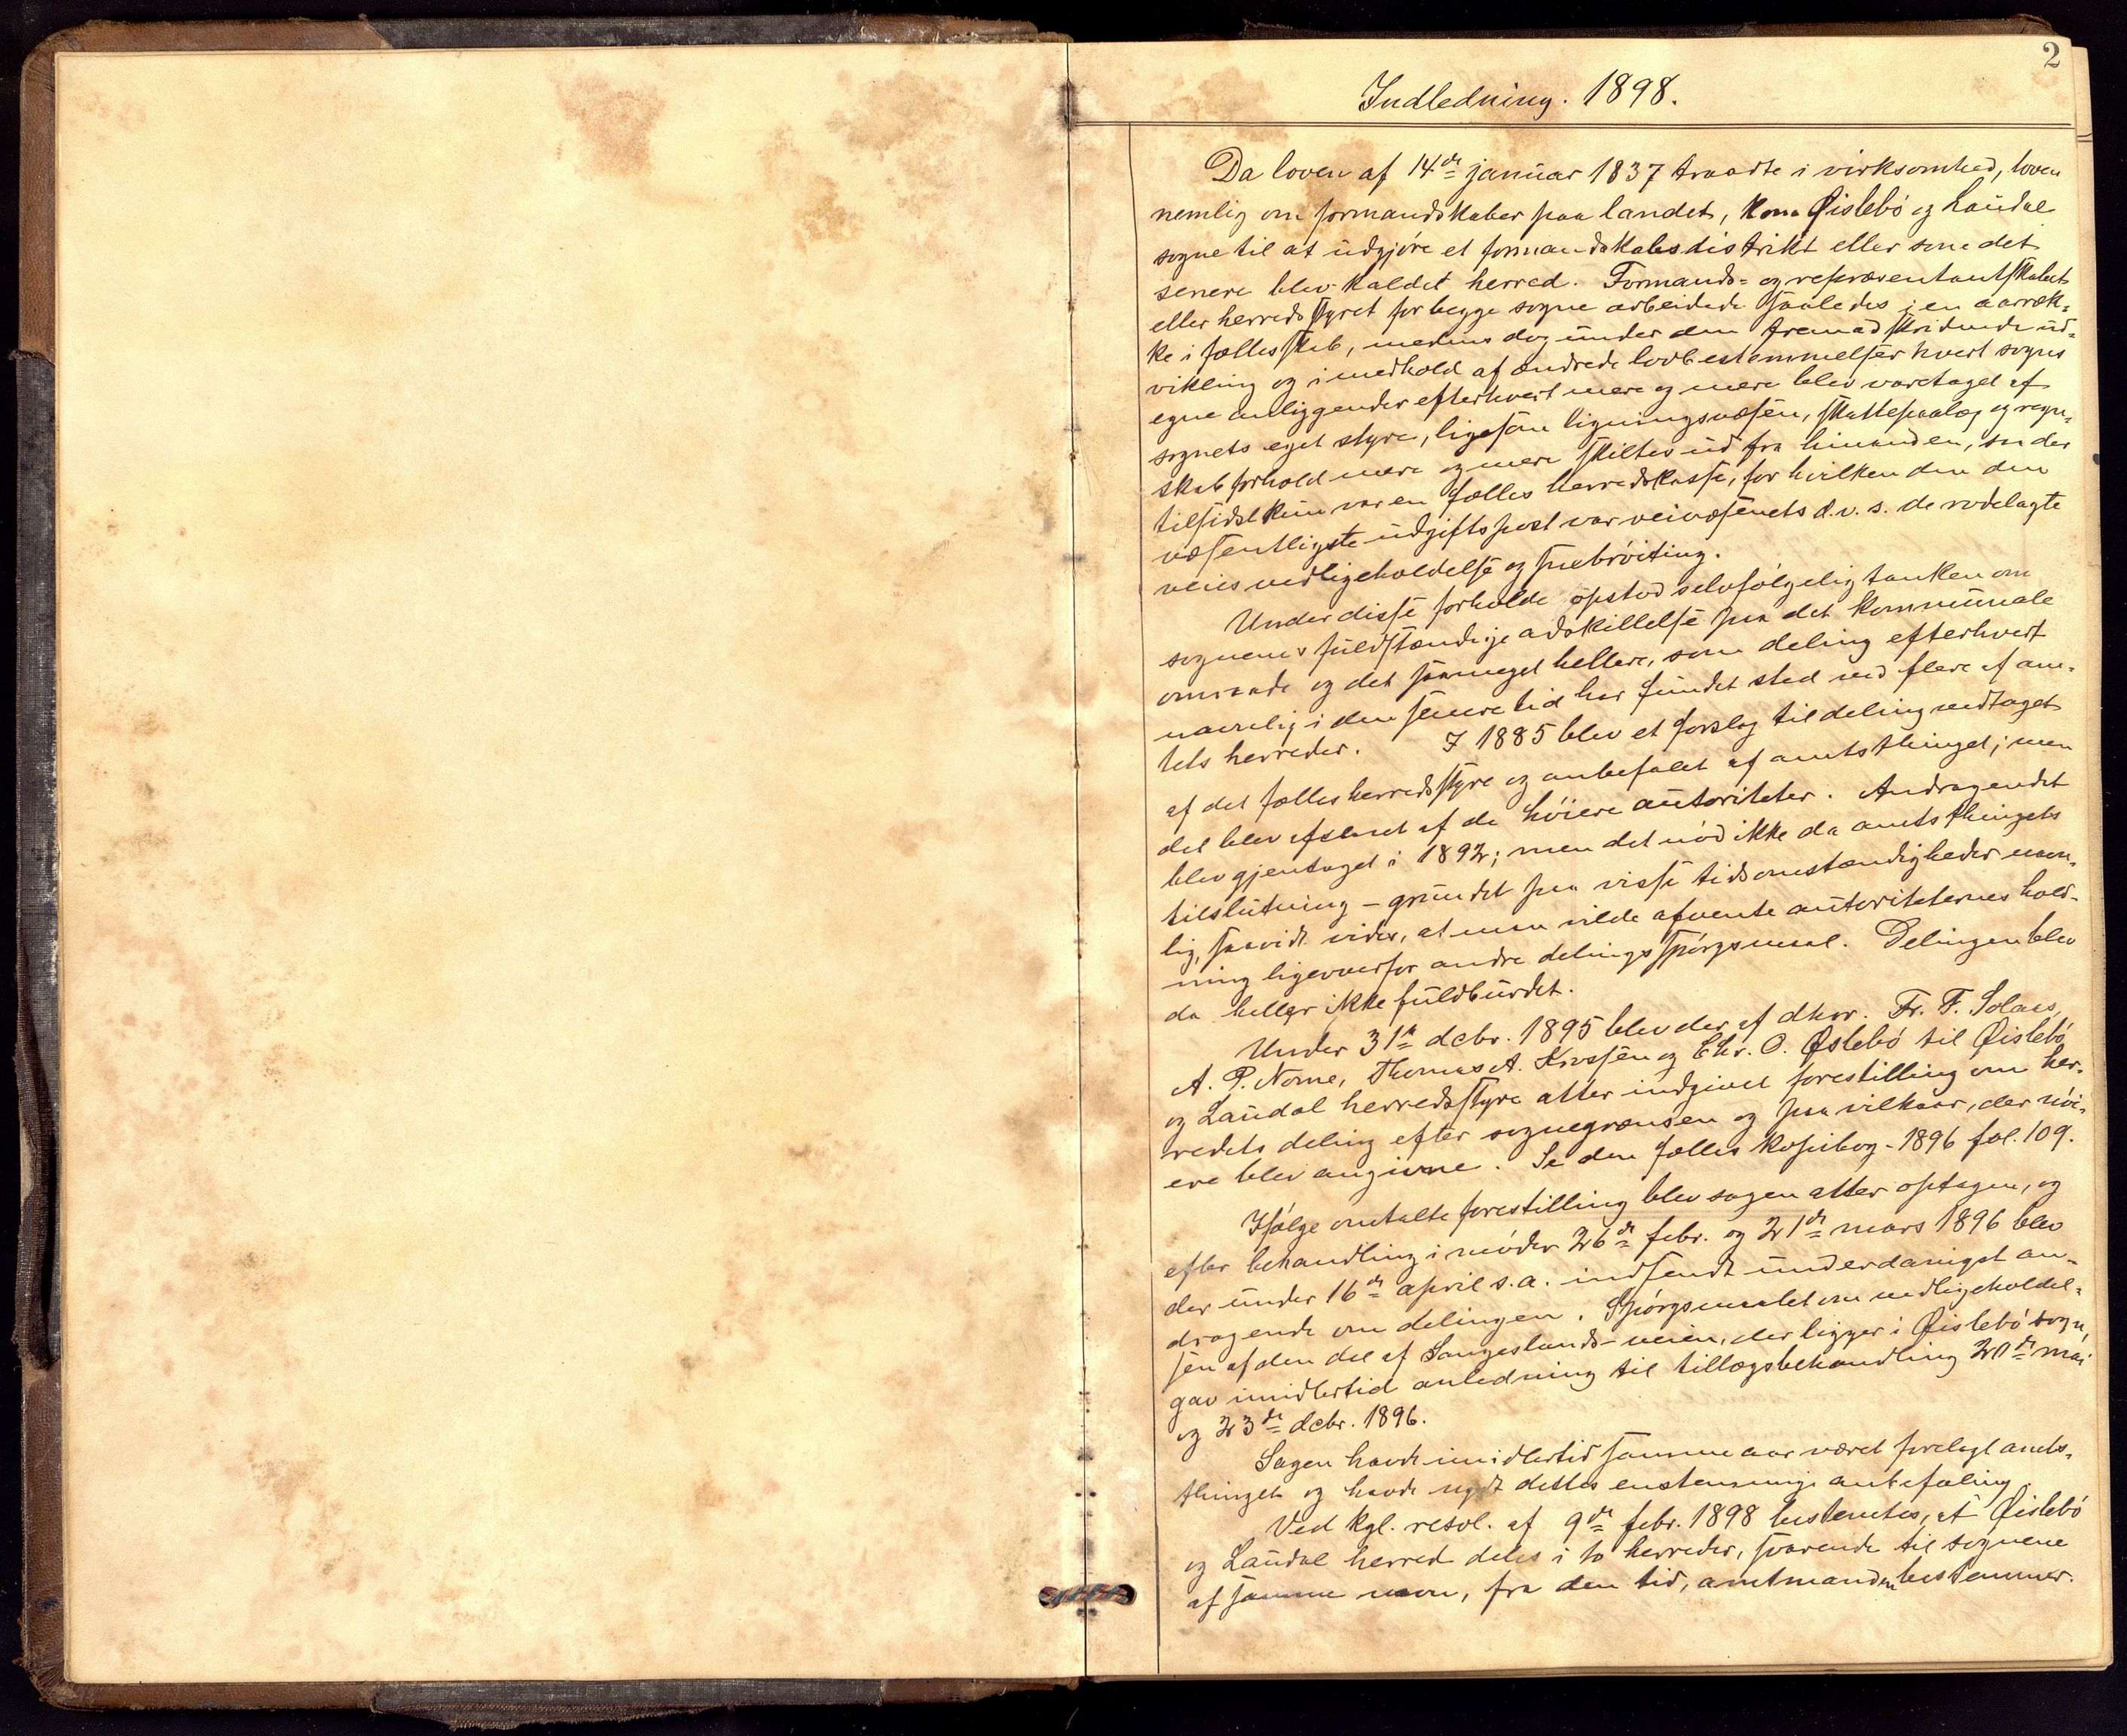 2
Indledning. 1898.
Da loven af 14de januar 1837 traadte i virksomhed, loven
nemlig om formandskaber paa landet, kom Øislebö og Laudal
sogne til at udgjöre et formandskabsdistrikt eller som det
senere blev kaldet herred. Formands- og repræsentantskabet
eller herredsstyret for begge sogne arbeidede saaledes i en aarræk-
ke i fællesskab, medens dog under den fremadskridende ud-
vikling og i medhold af ændrede lovbestemmelser hvert sogns
egne anliggender efterhvert mere og mere blev varetaget af
sognets eget styre, ligesom ligningsvæsen, skattepaalæg og regn-
skabsforhold mere og mere skiltes ud fra hinanden, saa der
tilsidst kun var en fælles herredskasse, for hvilken den
væsentligste udgiftspost var veivæsenets d.v.s. de rodelagte
veies vedligeholdelse og snebröiting.
Under disse forholde opstod selvfölgelig tanken om
sognenes fuldstændige adskillelse paa det kommunale
omraade og det saameget hellere, som deling efterhvert
navnlig i den senere tid har fundet sted ved flere af am-
tets herreder. I 1885 blev et forslag til deling vedtaget
af det fælles herredsstyre og anbefalet af amtsthinget; men
det blev afslaaet af de höiere autoriteter. Andragendet
blev gjentaget i 1892; men det nöd ikke da amtsthingets
tilslutning – grundet paa visse tidsomstændigheder navn-
lig, saavidt vides, at man vilde afvente autoriteternes hold-
ning ligeoverfor andre delingsspörgsmaal. Delingen blev
da heller ikke fuldburdet.
Under 31te dcbr. 1895 blev der af dhrr. Fr. F. Solaas,
A. P. Nome, Thomas A. Krossen og Chr. O. Øslebö til Øislebö
og Laudal herredsstyre atter indgivet forestilling om her-
redets deling efter sognegrænsen og paa vilkaar, der nöi-
ere blev angivne. Se den fælles kopibog - 1896 fol. 109.
Ifölge omtalte forestilling blev sagen atter optagen, og
efter behandling i möder 26de febr. og 21de mars 1896 blev
der under 16de april s.a. indsendt underdanigst an-
dragende om delingen. Spörgsmaalet om vedligeholdel-
sen af den del af Sangeslands-veien, der ligger i Øislebö sogn,
gav imidlertid anledning til tillægsbehandling 20de mai
og 23de dcbr. 1896.
Sagen havde imidlertid samme aar været forelagt amts-
thinget og havde nydt dettes enstemmige anbefaling.
Ved kgl. resol. af 9de febr. 1898 bestemtes, at Øislebö
og Laudal herred deles i to herreder, svarende til sognene
af samme navn, fra den tid, amtmanden bestemmer.